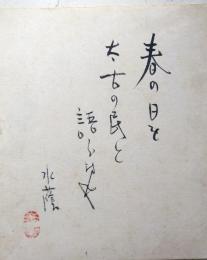 春の日を
太古の民と
語りけり
水蔭